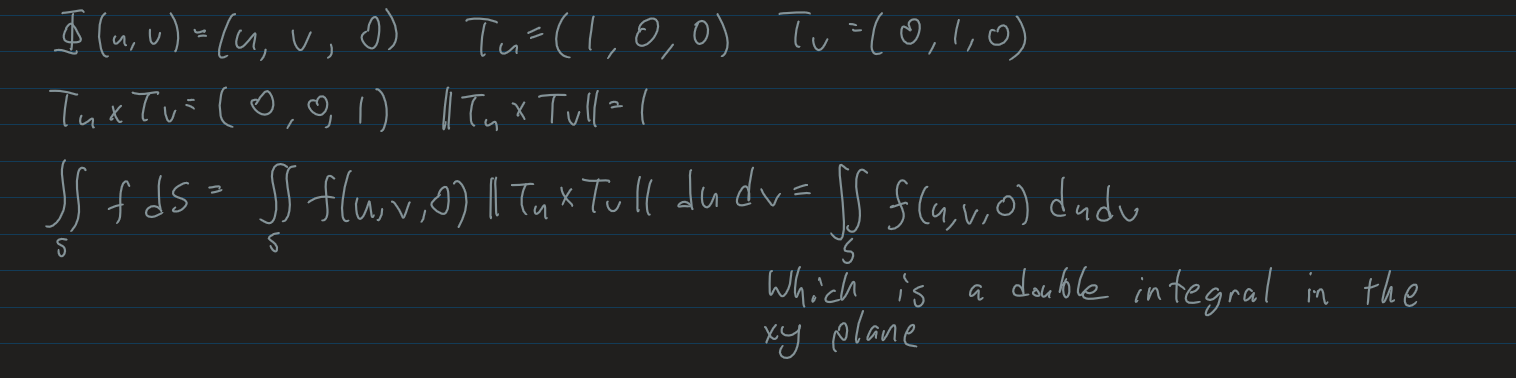 Φ(u,v)=(u, v, 0) Tu=(1, 0, 0) Tv=(0,1,0)
Tu×Tv=(0,0,1) ||Tu×Tv||=1
∬S f dS = ∬S f(u,v,0) ||Tu×Tv|| du dv = ∬S f(u,v,0) dudv
Which is a double integral in the
xy plane